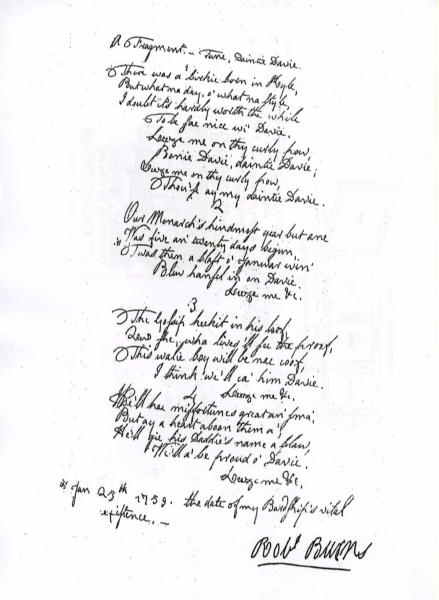 A Fragment — Tune, Daintie Davie.
There was a birkie born in Kyle,
But what na day, o' what na style,
I doubt it's hardly worth the while
To be sae nice wi' Davie.
Leeze me on thy curly pow,
Bonie Davie, daintie Davie;
Leeze me on thy curly pow,
Thou'se ay my daintie Davie.
2
Our Monarch's hindmost year but ane
Was five an' twenty days begun,
* 'Twas then a blast o' Januar win'
Blew hansel in on Davie.
Leeze me &c.
3
The Gossip keekit in his loof,
Quo' she, wha lives'll see the proof,
This walie boy will be nae coof,
I think we'll ca' him Davie.
4 Leeze me &c.
He'll hae misfortunes great an' sma',
But ay a heart aboon them a';
He'll gie his Daddie's name a blaw,
We'll a' be proud o' Davie.
Leeze me &c.
* Jan 25th 1759. the date of my Bardship's vital
existence. —
Robt Burns